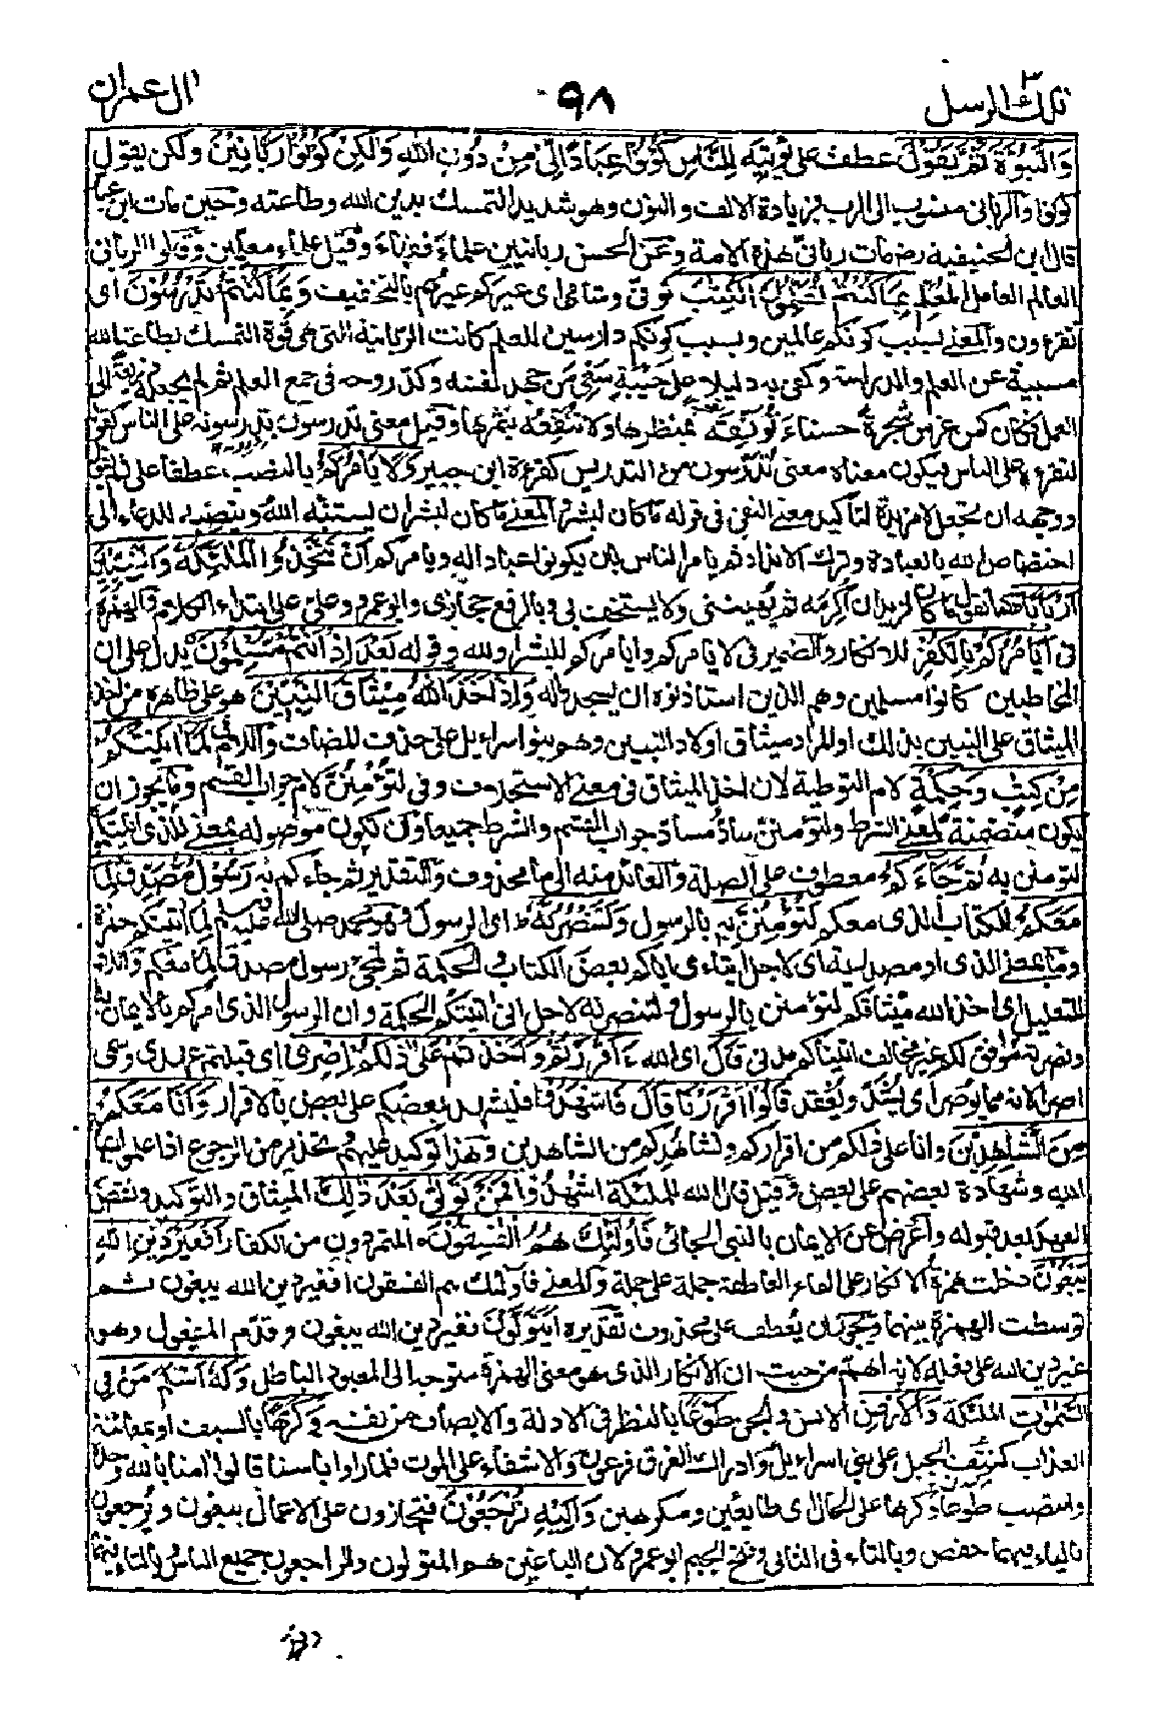 تلك الرسل ٣
٩٨
ال عمران
وَالنُّبُوَّةَ ثُمَّ يَقُوْلَ عطف على يؤتيه لِلنَّاسِ كُوْنُوْا عِبَادًا لِّيْ مِنْ دُوْنِ اللهِ وَلٰكِنْ كُوْنُوْا رَبَّانِيّٖنَ ولكن يقول
كونوا والربانى منسوب الى الرب بزيادة الالف والنون وهو شديد التمسك بدين الله وطاعته وحين مات ابن عباس
قال ابن الحنيفية رض مات ربانى هذه الامة وعن الحسن ربانيين علماء فقهاء وقيل علماء معلمين وقالوا الربانى
العالم العامل المعلم بِمَا كُنْتُمْ تُعَلِّمُوْنَ الْكِتٰبَ كوفى وشامى اى غيركم غيرهم بالتخفيف وَبِمَا كُنْتُمْ تَدْرُسُوْنَ اى
تقرءون والمعنى بسبب كونكم عالمين وبسبب كونكم دارسين للعلم كانت الربانية التى هى قوة التمسك بطاعة الله
مسببة عن العلم والدراسة وكفى به دليلا على خيبة سعى من جهد نفسه وكد روحه فى جمع العلم ثم لم يجعله ذريعة الى
العمل فكان كمن غرس شجرة حسناء تونقه بمنظرها ولا تنفعه بثمرها وقيل معنى تدرسون تدرسونه على الناس كقوله
لتقرءه على الناس فيكون معناه معنى تُدَرِّسون من التدريس كقرءة ابن جبير وَلَا يَأْمُرَكُمْ بالنصب عطفا على ثم يقول
ووجهه ان تجعل لا مزيدة لتاكيد معنى النفى فى قوله ما كان لبشر والمعنى ما كان لبشر ان يستنبئه الله وينصبه للدعاء الى
اختصاص الله بالعبادة وترك الانداد ثم يامر الناس بان يكونوا عبادا له ويامركم اَنْ تَتَّخِذُوا الْمَلٰئِكَةَ وَالنَّبِيّٖنَ
اَرْبَابًا كما تقول ما كان لزيد ان اكرمه ثم يهيننى ولا يستخف بى وبالرفع حجازى وابو عمرو وعلى على ابتداء الكلام والهمزة
فى اَيَاْمُرُكُمْ بِالْكُفْرِ للانكار والضمير فى لا يامركم وايامركم للبشر او لله وقوله بَعْدَ اِذْ اَنْتُمْ مُّسْلِمُوْنَ يدل على ان
المخاطبين كانوا مسلمين وهم الذين استاذنوه ان يسجدوا له وَاِذْ اَخَذَ اللهُ مِيْثَاقَ النَّبِيّٖنَ هو على ظاهره من اخذ
الميثاق على النبيين بذلك او المراد ميثاق اولاد النبيين وهم بنو اسراءيل على حذف المضاف واللام فى لَمَا اٰتَيْتُكُمْ
مِّنْ كِتٰبٍ وَّحِكْمَةٍ لام التوطية لان اخذ الميثاق فى معنى الاستحلاف وفى لتؤمنن لام جواب القسم وما يجوز ان
يكون متضمنة لمعنى الشرط ولتؤمنن ساد مسد جواب القسم والشرط جميعا وان تكون موصولة بمعنى للذى اتيتكموه
لتؤمنن به ثُمَّ جَآءَكُمْ معطوف على الصلة والعائد منه الى ما محذوف والتقدير ثم جاءكم به رَسُوْلٌ مُّصَدِّقٌ لِّمَا
مَعَكُمْ للكتاب الذى معكم لَتُؤْمِنُنَّ بِهٖ بالرسول وَلَتَنْصُرُنَّهٗ ط اى الرسول وهو محمد صلى الله عليه وسلم لِمَا اٰتيتكم حمزة
وما بمعنى الذى او مصدرية اى لاجل ايتاءى اياكم بعض الكتاب والحكمة ثم لمجىء رسول مصدق لما معكم واللام
للتعليل اى اخذ الله ميثاقكم لتؤمنن بالرسول ولتنصرنه لاجل انى اتيتكم الحكمة وان الرسول الذى امركم بالايمان به
ونصرته موافق لكم غير مخالف اتيناكم مدنى قَالَ اى الله ءَاَقْرَرْتُمْ وَاَخَذْتُمْ عَلٰى ذٰلِكُمْ اِصْرِيْ اى قبلتم عهدى وسمى
اصرا لانه مما يؤصر اى يشد ويعقد قَالُوْا اَقْرَرْنَا قَالَ فَاشْهَدُوْا فليشهد بعضكم على بعض بالاقرار وَاَنَا مَعَكُمْ
مِّنَ الشّٰهِدِيْنَ وانا على ذلكم من اقراركم وتشاهدكم من الشاهدين وهذا توكيد عليهم وتحذير من الرجوع اذا علموا بشهادة
الله وشهادة بعضهم على بعض وقيل قال الله للملئكة اشهدوا فَمَنْ تَوَلّٰى بَعْدَ ذٰلِكَ الميثاق والتوكيد ونقض
العهد بعد قبوله واعرض عن الايمان بالنبى الجائى فَاُولٰٓئِكَ هُمُ الْفٰسِقُوْنَ المتمردون من الكفار اَفَغَيْرَ دِيْنِ اللهِ
يَبْغُوْنَ دخلت همزة الانكار على الفاء العاطفة جملة على جملة والمعنى فاولئك هم الفسقون افغير دين الله يبغون ثم
توسطت الهمزة بينهما ويجوز ان يعطف على محذوف تقديره ايتولون فغير دين الله يبغون وقدم المفعول وهو
غير دين الله على فعله لانه اهم من حيث ان الانكار الذى هو معنى الهمزة متوجه الى المعبود الباطل وَلَهٗ اَسْلَمَ مَنْ فِي
السَّمٰوٰتِ الملئكة وَالْاَرْضِ الانس والجن طَوْعًا بالنظر فى الادلة والانصاف من نفسه وَّكَرْهًا بالسيف او بمعاينة
العذاب كنتق الجبل على بنى اسراءيل وادراك الغرق فرعون والاشفاء على الموت فلما راوا باسنا قالوا امنا بالله وحده
وانتصب طوعا وكرها على الحال اى طايعين ومكرهين وَاِلَيْهِ تُرْجَعُوْنَ فتجازون على الاعمال يبغون ويرجعون
بالياء فيهما حفص وبالتاء فى الثانى وفتح الجيم ابو عمرو لان الباغين هم المتولون والراجعون جميع الناس بالتاء فيهما